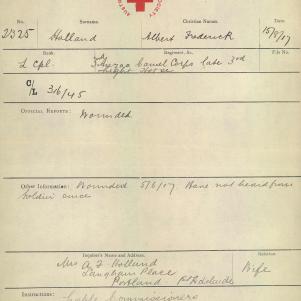 SOCIETY
No.
Surname.
Christian Names.
2325
Holland
Albert Frederick
15/8/17
Rank.
Regiment, &c.
File No.
L Cpl.
Camel Corps late 3rd
Light Horse
C/L 316/45
OFFICIAL REPORTS: Wounded
Other Information: Wounded 5/6/17. Have not heard from
Soldier since
Inquirer's Name and Address.
Relation
Mrs A. F. Holland
Langham Place
Portland Pt Adelaide
Wife
Instructions: Cable Commissioners